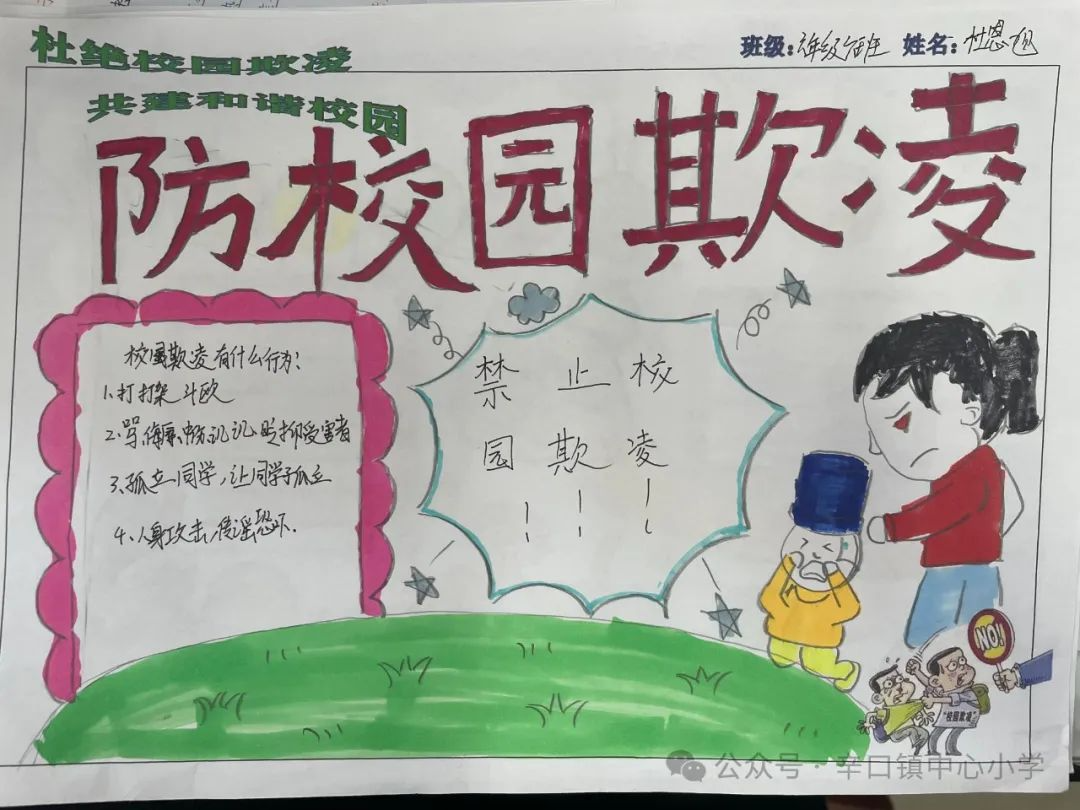 杜绝校园欺凌
共建和谐校园
班级: 姓名: 杜恩旭
防校园欺凌
校园欺凌有什么行为:
1、打打架 斗欧
2、骂、侮辱、贬抑受害者
3、孤立同学,让同学孤立
4、人身攻击、传谣恐吓.
禁止校
园欺凌
!!!
NO!
"校园欺凌"
公众号·辛口镇中心小学